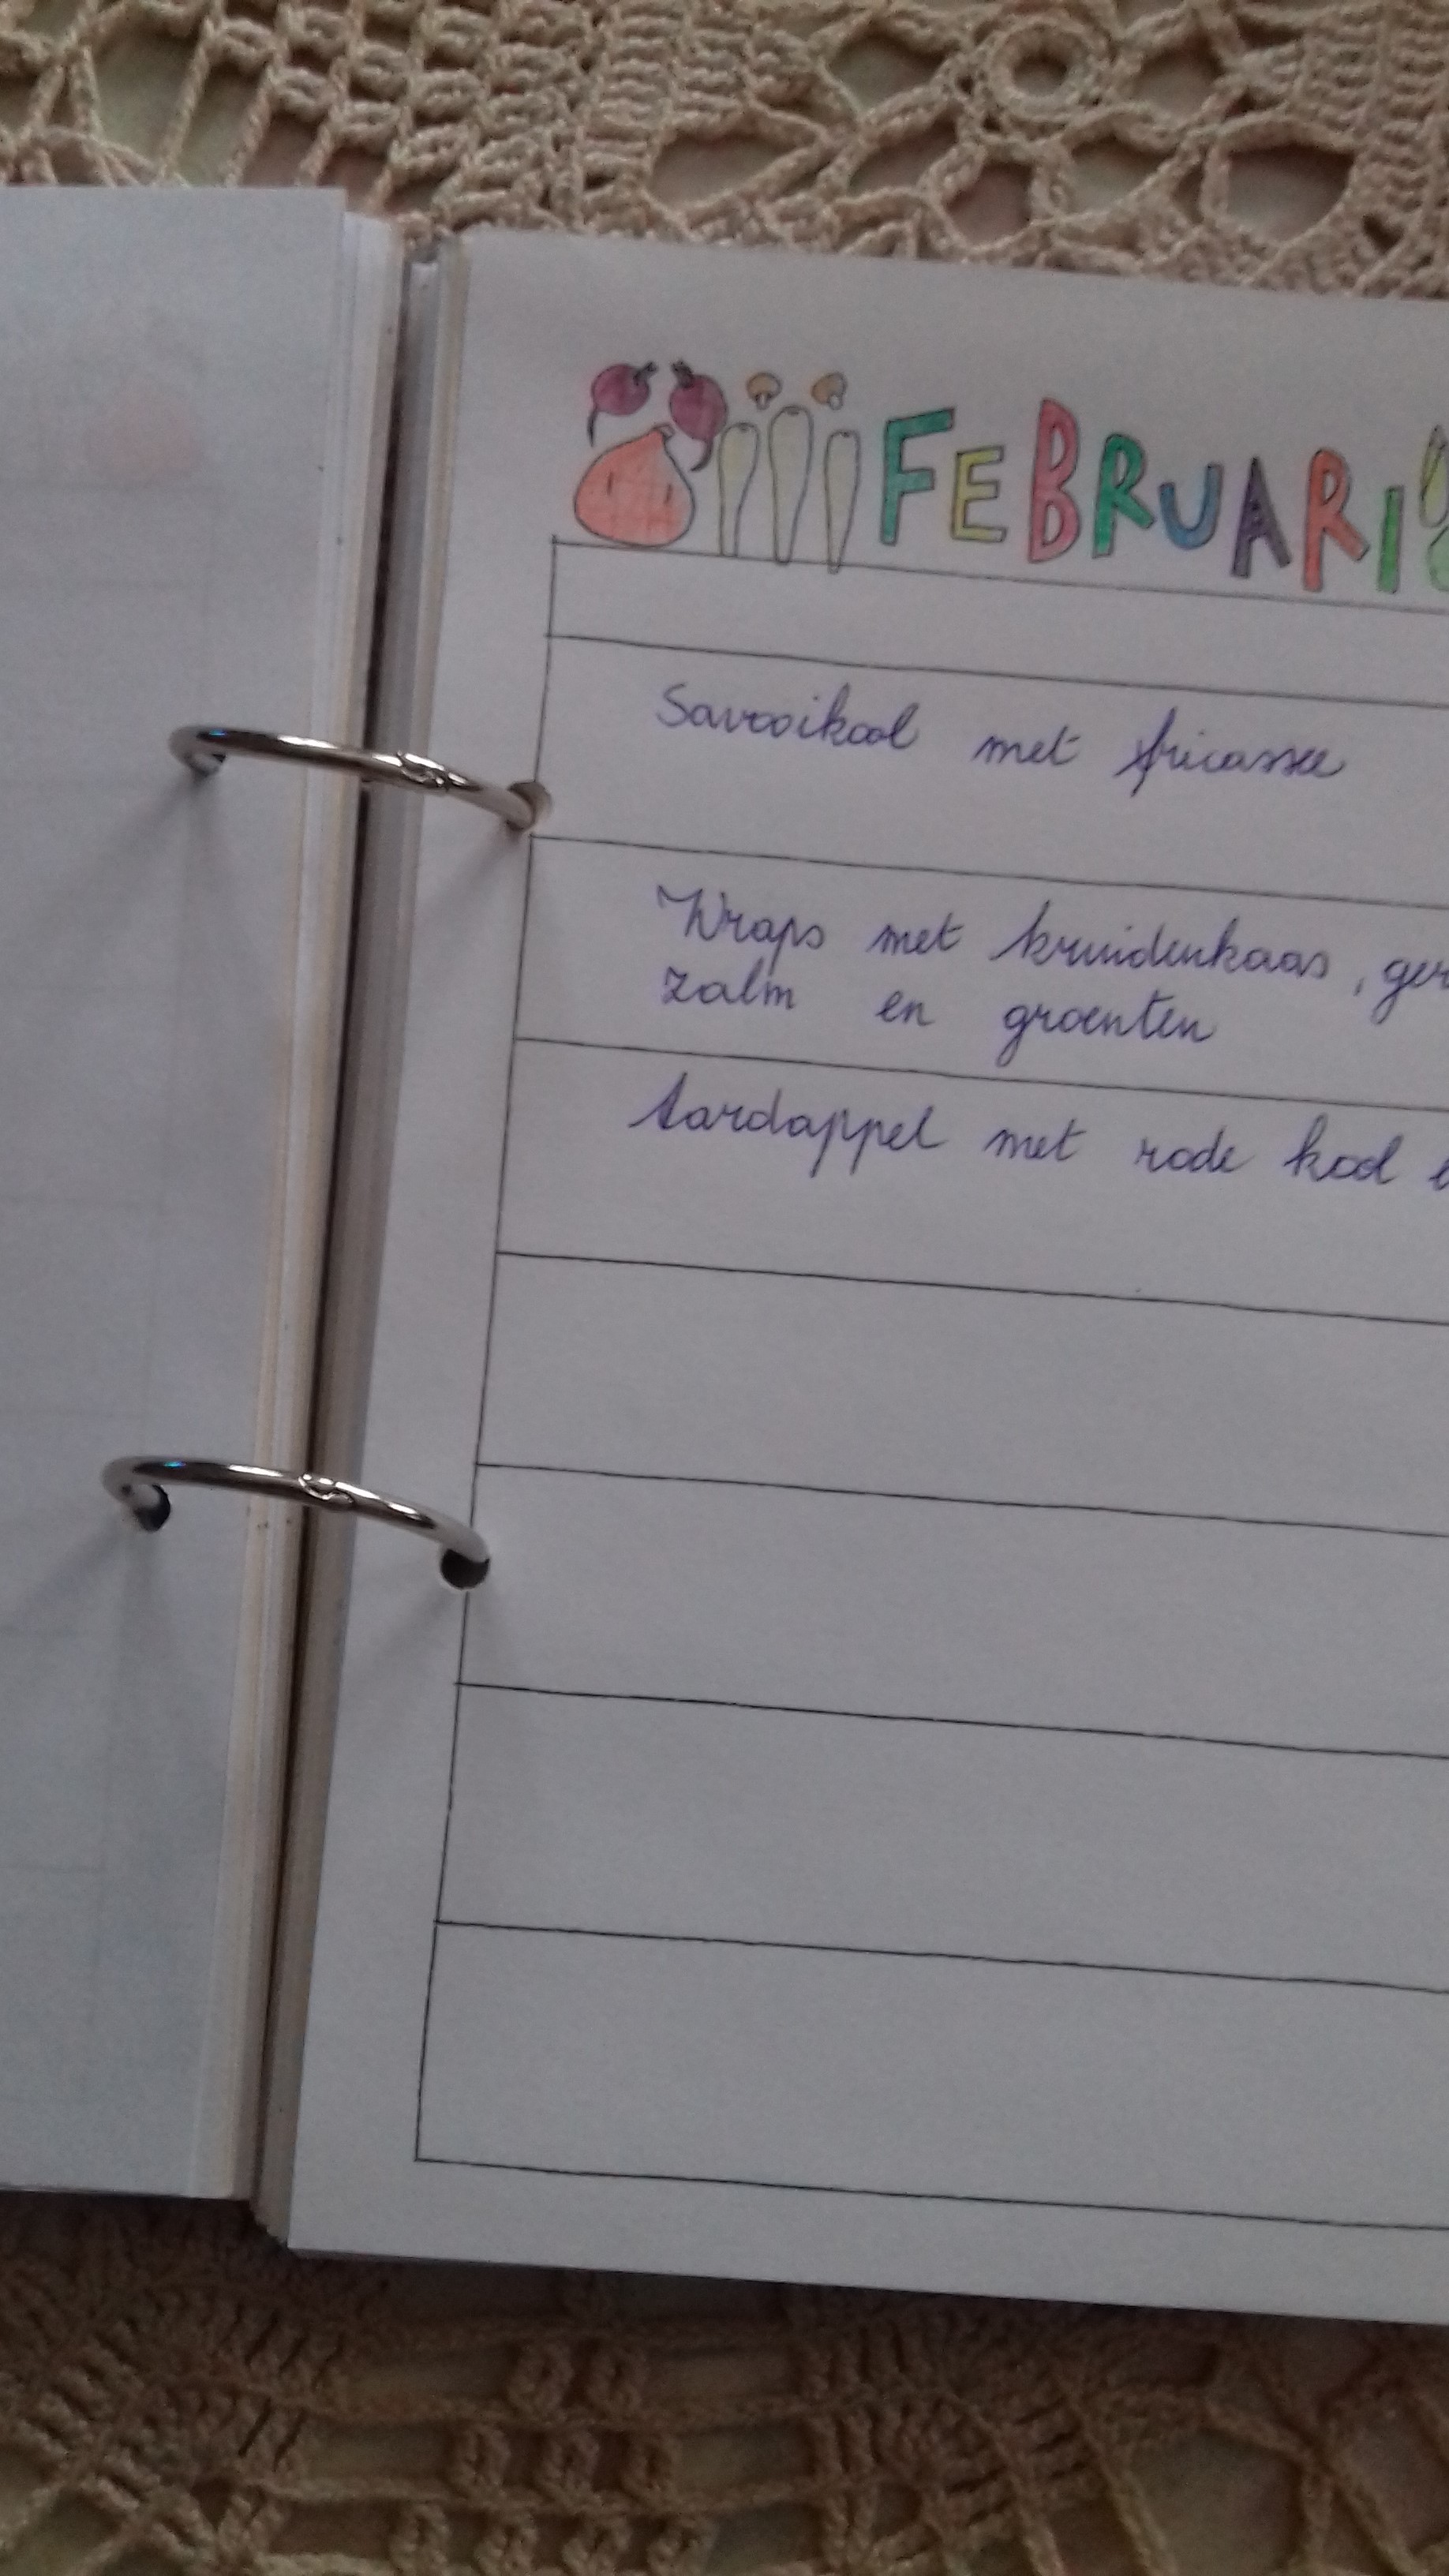 FEBRUARI
Savooikool met fricassee
Wraps met kruidenkaas, ger
zalm en groenten
Aardappel met rode kool e